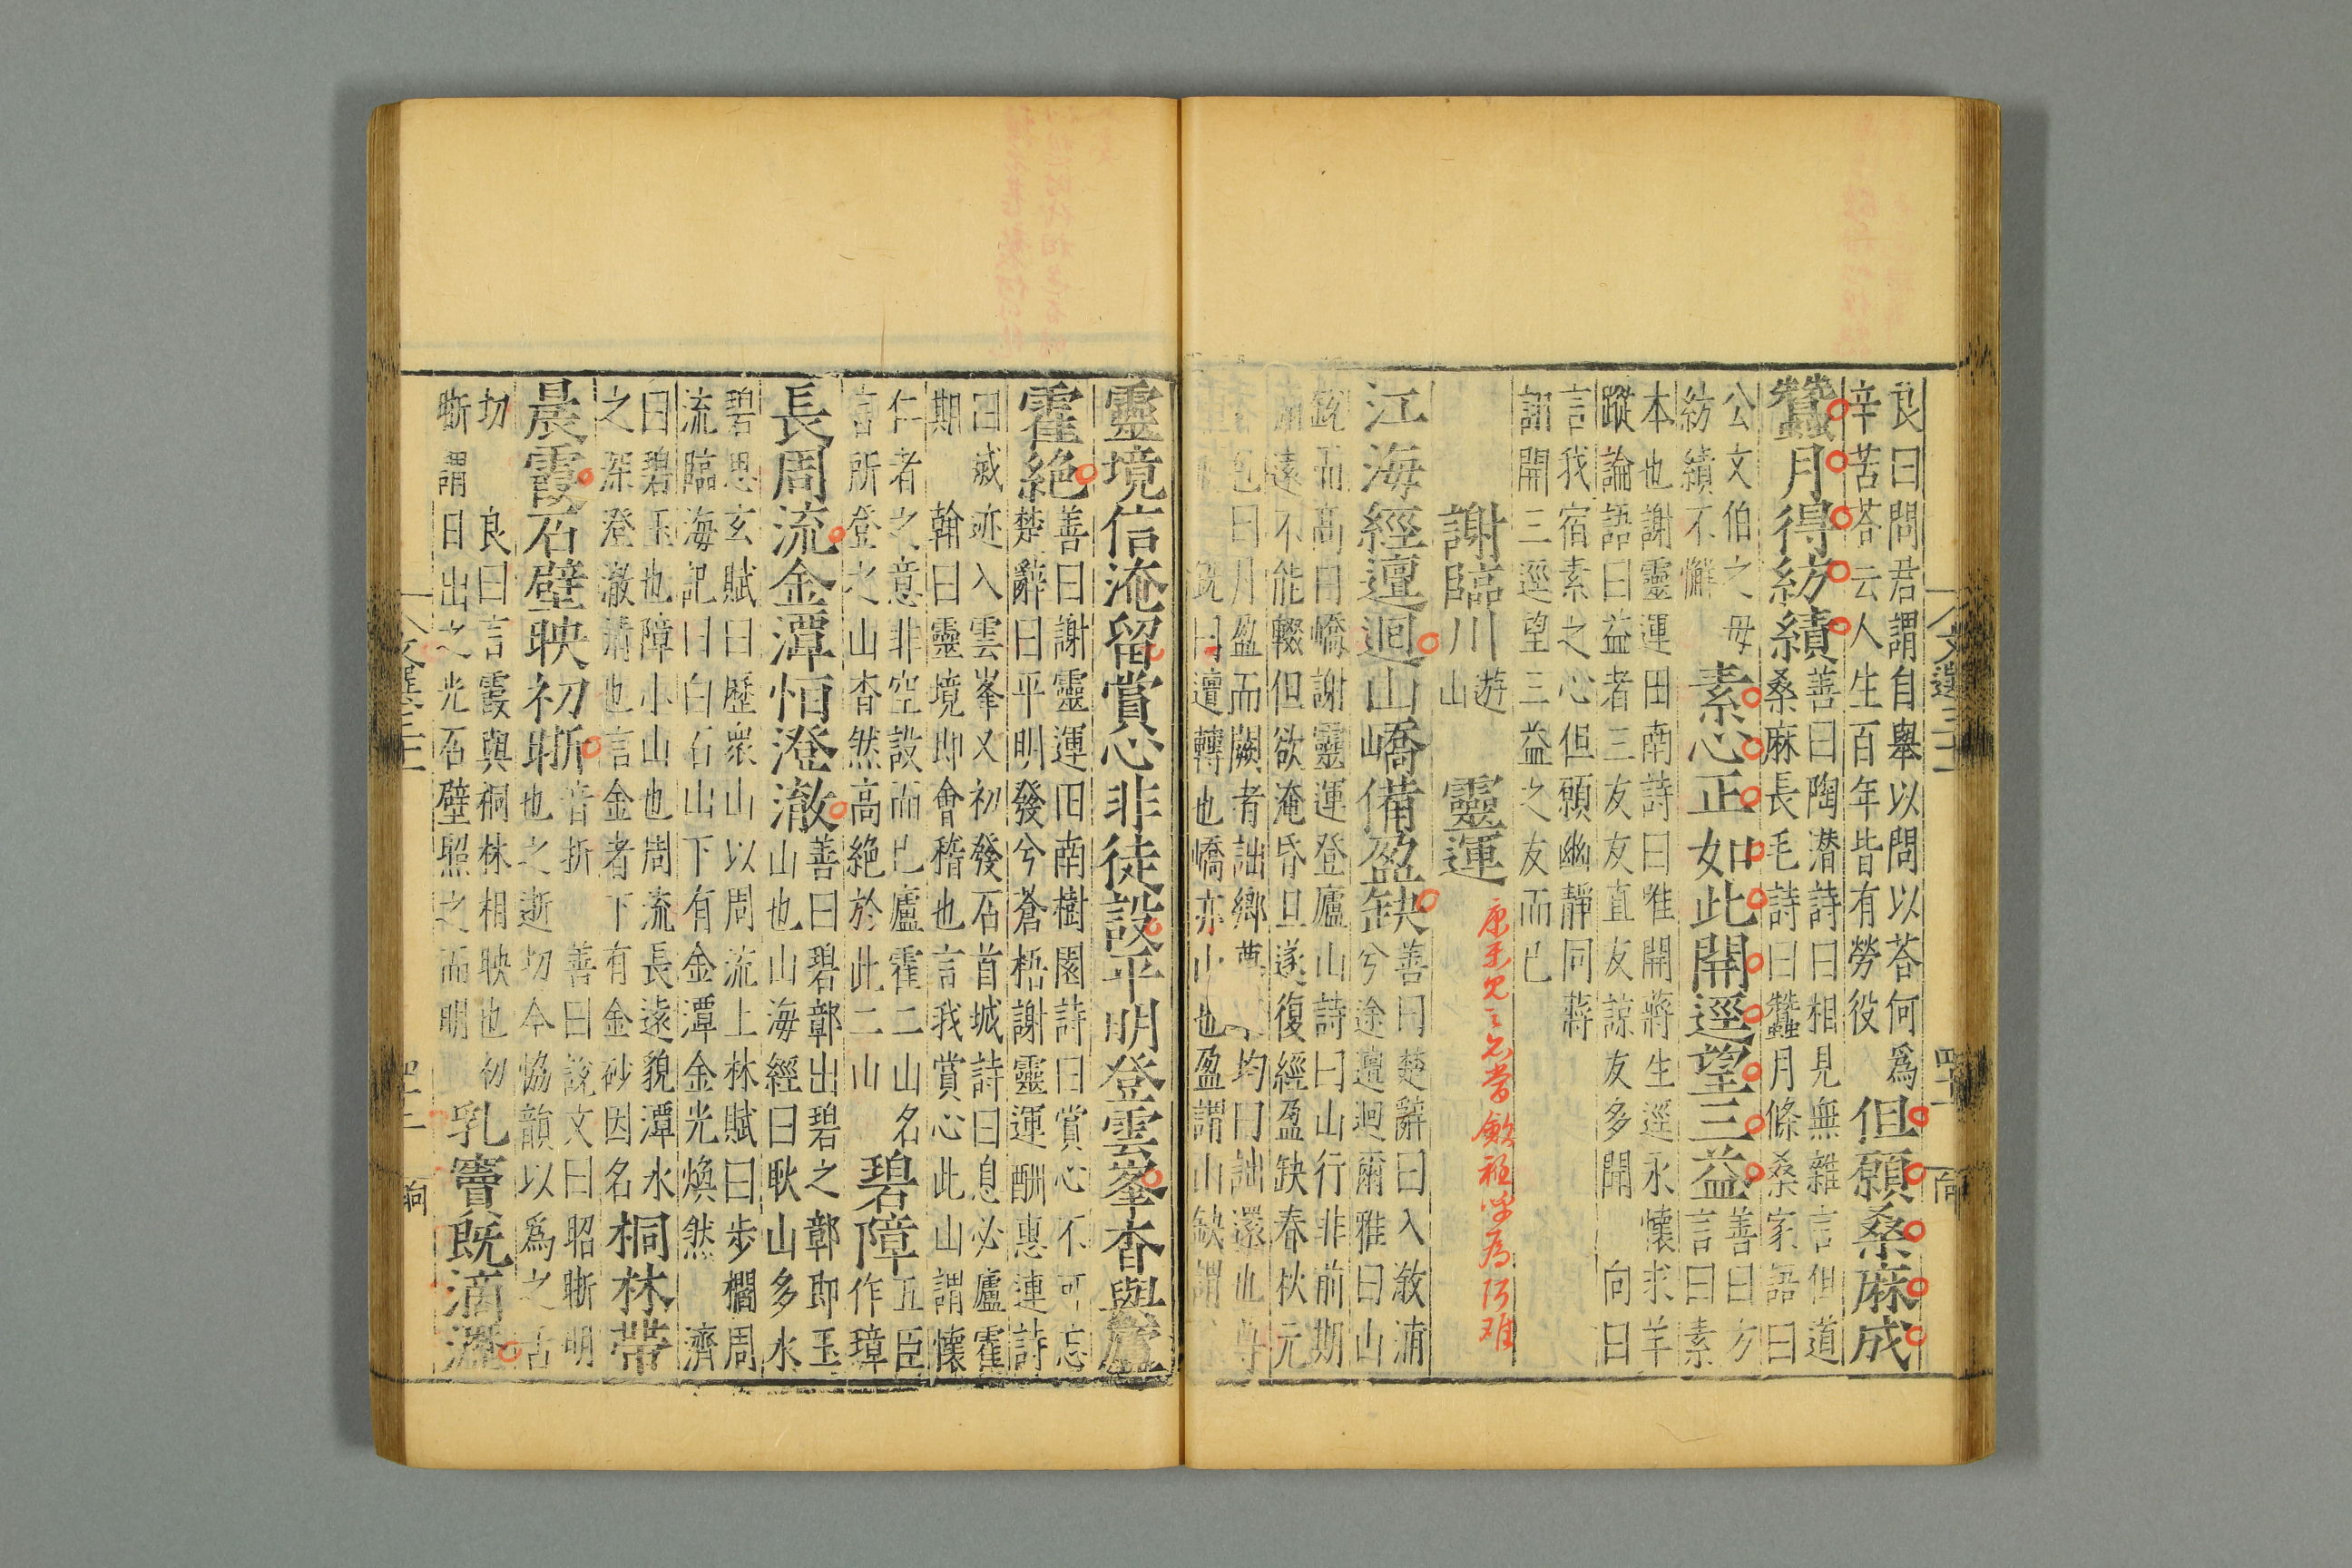 良曰問君謂自舉以問以荅何爲
辛苦荅云人生百年皆有勞役
但願桑麻成
蠶月得紡績
善曰陶潜詩曰相見無雜言但道
桑麻長毛詩曰蠶月條桑家語曰
公文伯之母
紡績不懈
素心正如此開逕望三益
善曰方
言曰素
本也謝靈運田南詩曰唯開蔣生逕永懷求羊
蹤論語曰益者三友友直友諒友多聞
向曰
言我宿素之心但願幽靜同蔣
詡開三逕望三益之友而已
謝臨川
遊
山
靈運
江海經邅迴山嶠備盈缺
善曰楚辭曰入敘浦
兮途邅迴爾雅曰山
銳而高曰嶠謝靈運登廬山詩曰山行非前期
彌遠不能輟但欲淹昏旦遂復經盈缺春秋元
包曰月盈而闕者詘鄉
均曰詘還也
銑曰邅轉也嶠亦山也盈謂山缺謂
靈境信淹留賞心非徒設平明登雲峯杳與廬
霍絶
善曰謝靈運田南樹園詩曰賞心不可忘
楚辭曰平明發兮蒼梧謝靈運酬惠連詩
曰滅迹入雲峯又初發石首城詩曰息必廬霍
期
翰曰靈境即會稽也言我賞心此山謂懷
仁者之意非空設而已廬霍二山名
言所登之山杳然高絶於此二山
碧障
五臣
作璋
長周流金潭恒澄澈
善曰碧鄣出碧之鄣即玉
山也山海經曰耿山多水
碧思玄賦曰歷衆山以周流上林賦曰步櫩周
流臨海記曰白石山下有金潭金光煥然
濟
曰碧玉也障小山也周流長遠貌潭水
之深澄澈清也言金者下有金砂因名
桐林帶
晨霞石壁映初晣
音折
善曰說文曰昭晣明
也之逝切今協韻以爲之舌
切
良曰言霞與桐林相映也初
晣謂日出之光石壁照之而明
乳竇既滴瀝